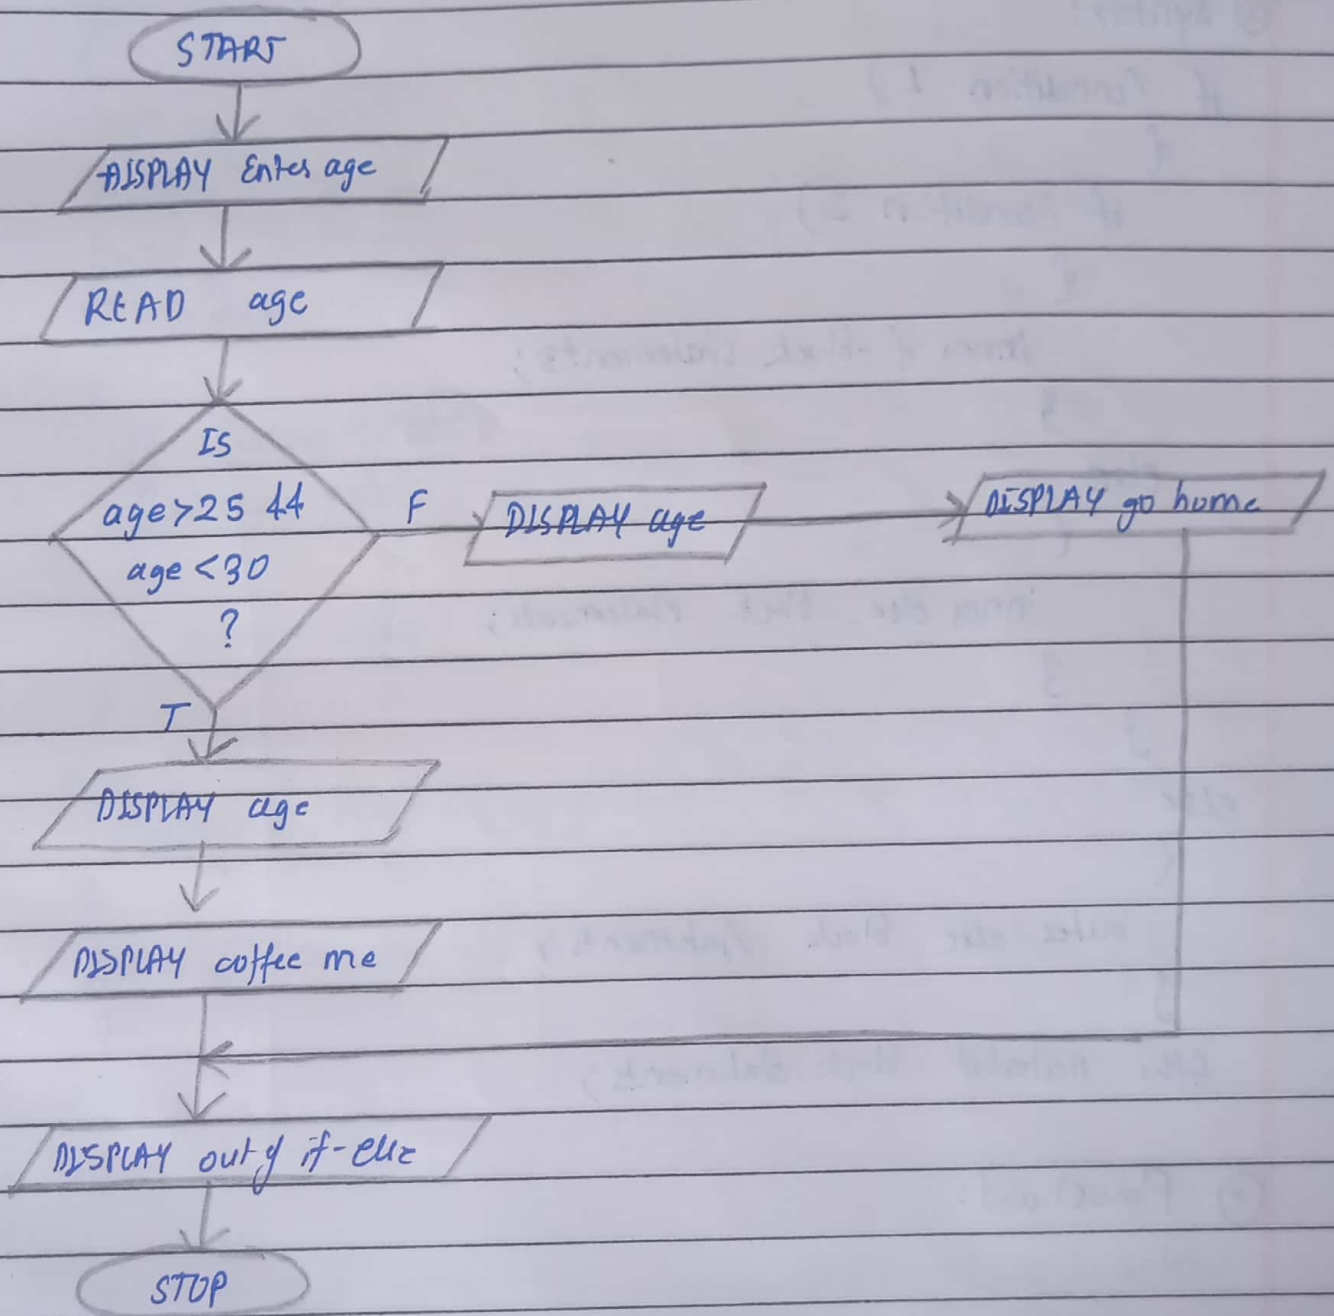 START
DISPLAY Enter age
READ age
IS
age>25 &&
age<30
?
F
DISPLAY age
DISPLAY go home
T
DISPLAY age
DISPLAY coffee me
DISPLAY out of if-else
STOP